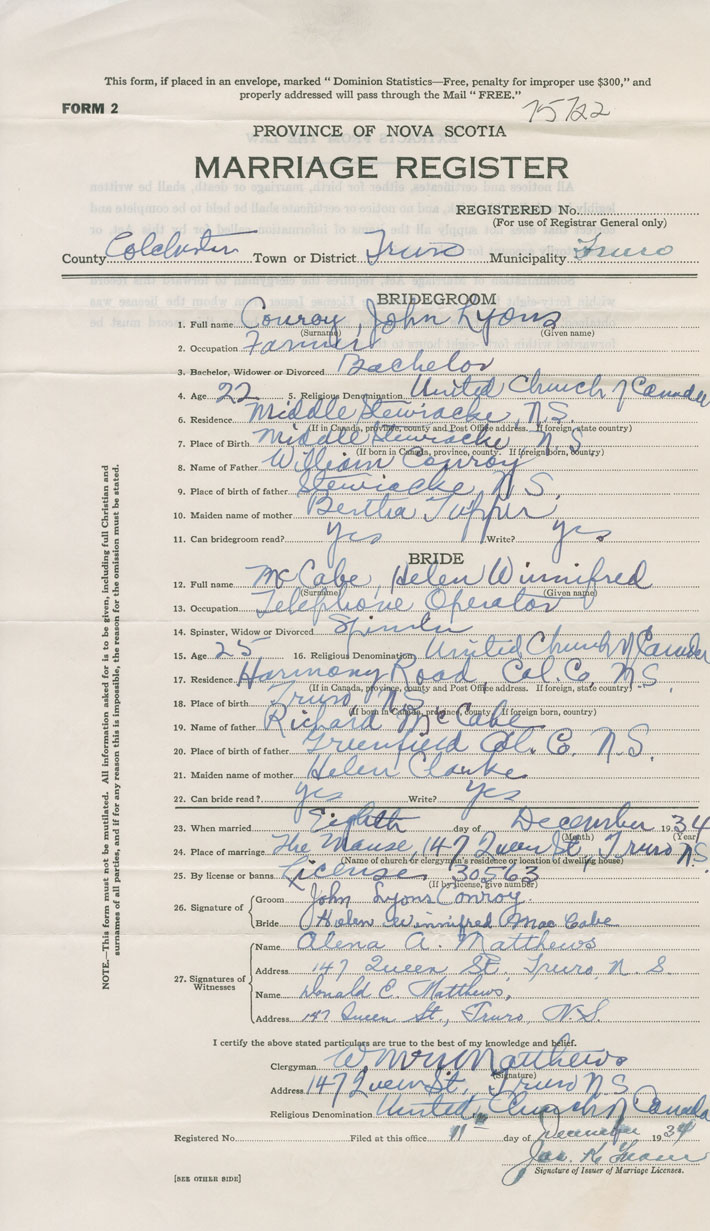 This form, if placed in an envelope, marked "Dominion Statistics—Free, penalty for improper use $300," and
properly addressed will pass through the Mail "FREE."
FORM 2
75722
PROVINCE OF NOVA SCOTIA
MARRIAGE REGISTER
REGISTERED No.
(For use of Registrar General only)
County Colchester Town or District Truro Municipality Truro
BRIDEGROOM
1. Full name Conroy, John Lyons
(Surname) (Given name)
2. Occupation Farmer
3. Bachelor, Widower or Divorced Bachelor
4. Age 22 5. Religious Denomination United Church of Canada
6. Residence Middle Stewiacke, N.S.
(If in Canada, province, county and Post Office address. If foreign, state country)
7. Place of Birth Middle Stewiacke N.S
(If born in Canada, province, county. If foreign born, country)
8. Name of Father William Conroy
9. Place of birth of father Stewiacke N.S.
10. Maiden name of mother Bertha Tupper
11. Can bridegroom read? Yes Write? yes
BRIDE
12. Full name McCabe, Helen Winnifred
(Surname) (Given name)
13. Occupation Telephone Operator
14. Spinster, Widow or Divorced Spinster
15. Age 25 16. Religious Denomination United Church of Canada
17. Residence Harmony Road, Col. Co, N.S.
(If in Canada, province, county and Post Office address. If foreign, state country)
18. Place of birth Truro N.S
(If born in Canada, province, county. If foreign born, country)
19. Name of father Richard McCabe
20. Place of birth of father Greenfield Col. Co. N.S.
21. Maiden name of mother Helen Clarke
22. Can bride read? yes Write? Yes
23. When married Eighth day of December 1934
(Month) (Year)
24. Place of marriage The Manse, 147 Queen St, Truro N.S
(Name of church or clergyman's residence or location of dwelling house)
25. By license or banns License 30563
(If by license, give number)
26. Signature of
Groom John Lyons Conroy
Bride Helen Winnifred MacCabe
27. Signatures of Witnesses
Name Alena A. Matthews
Address 147 Queen St. Truro, N.S.
Name Donald C. Matthews,
Address 147 Queen St., Truro, N.S.
I certify the above stated particulars are true to the best of my knowledge and belief.
Clergyman Matthews
(Signature)
Address 147 Queen St, Truro N.S
Religious Denomination United Church of Canada
Registered No. Filed at this office 11th day of December 1934
Jas. K. Fraser
Signature of Issuer of Marriage Licenses.
[SEE OTHER SIDE]
NOTE.—This form must not be mutilated. All information asked for is to be given, including full Christian and
surnames of all parties, and if for any reason this is impossible, the reason for the omission must be stated.